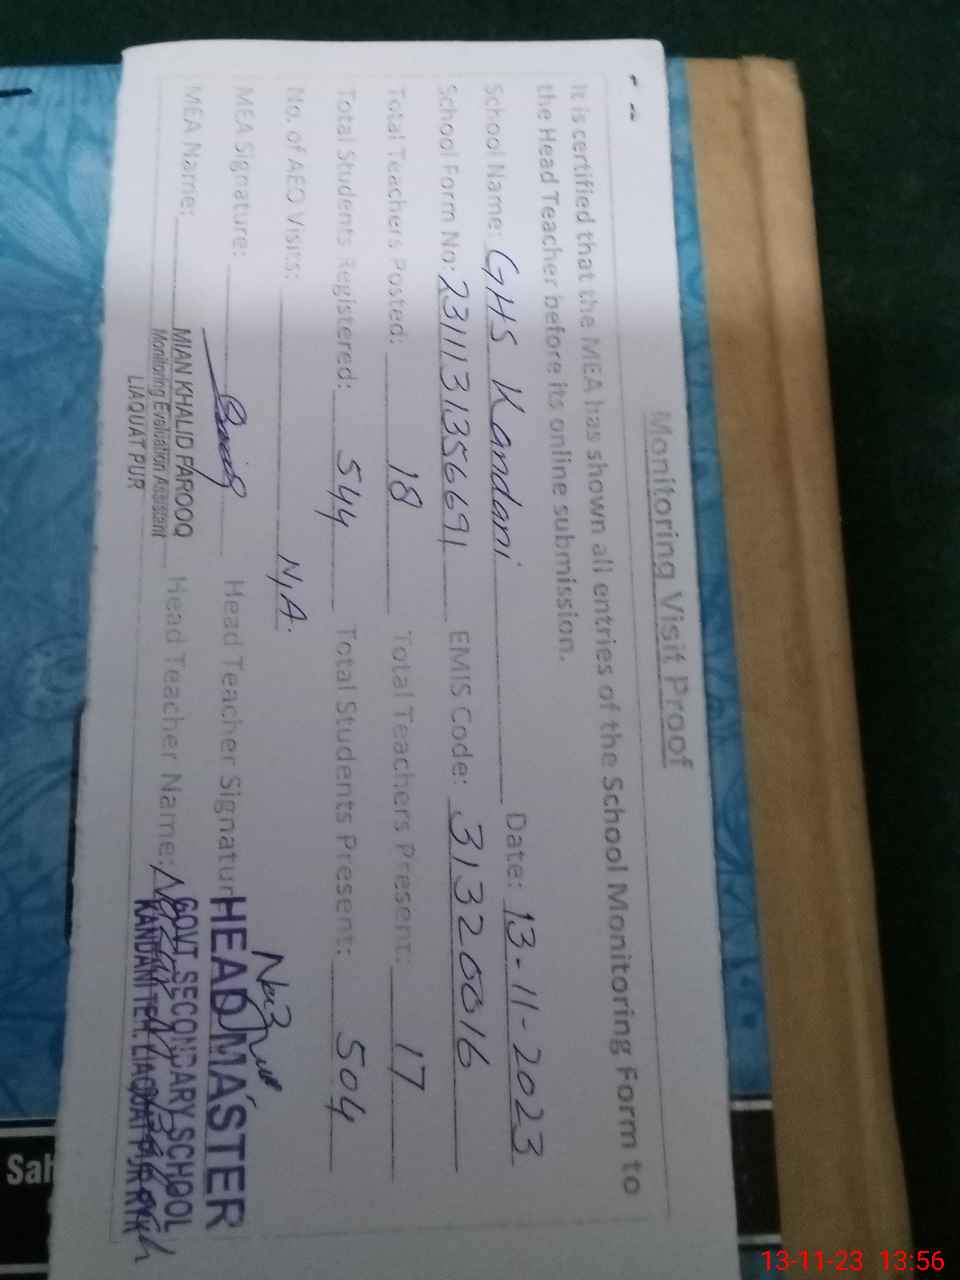 Monitoring Visit Proof
It is certified that the MEA has shown all entries of the School Monitoring Form to
the Head Teacher before its online submission.
School Name: GHS Kandani Date: 13-11-2023
School Form No: 2311131356691 EMIS Code: 31320016
Total Teachers Posted: 18 Total Teachers Present: 17
Total Students Registered: 544 Total Students Present: 504
No. of AEO Visits: N/A.
MEA Signature: Head Teacher Signature
HEADMASTER
MEA Name: MIAN KHALID FAROOQ Head Teacher Name:
Monitoring Evaluation Assistant
LIAQUAT PUR
GOVT. SECONDARY SCHOOL
KANDANI TEH. LIAQUAT PUR RYK
Sal
13-11-23 13:56